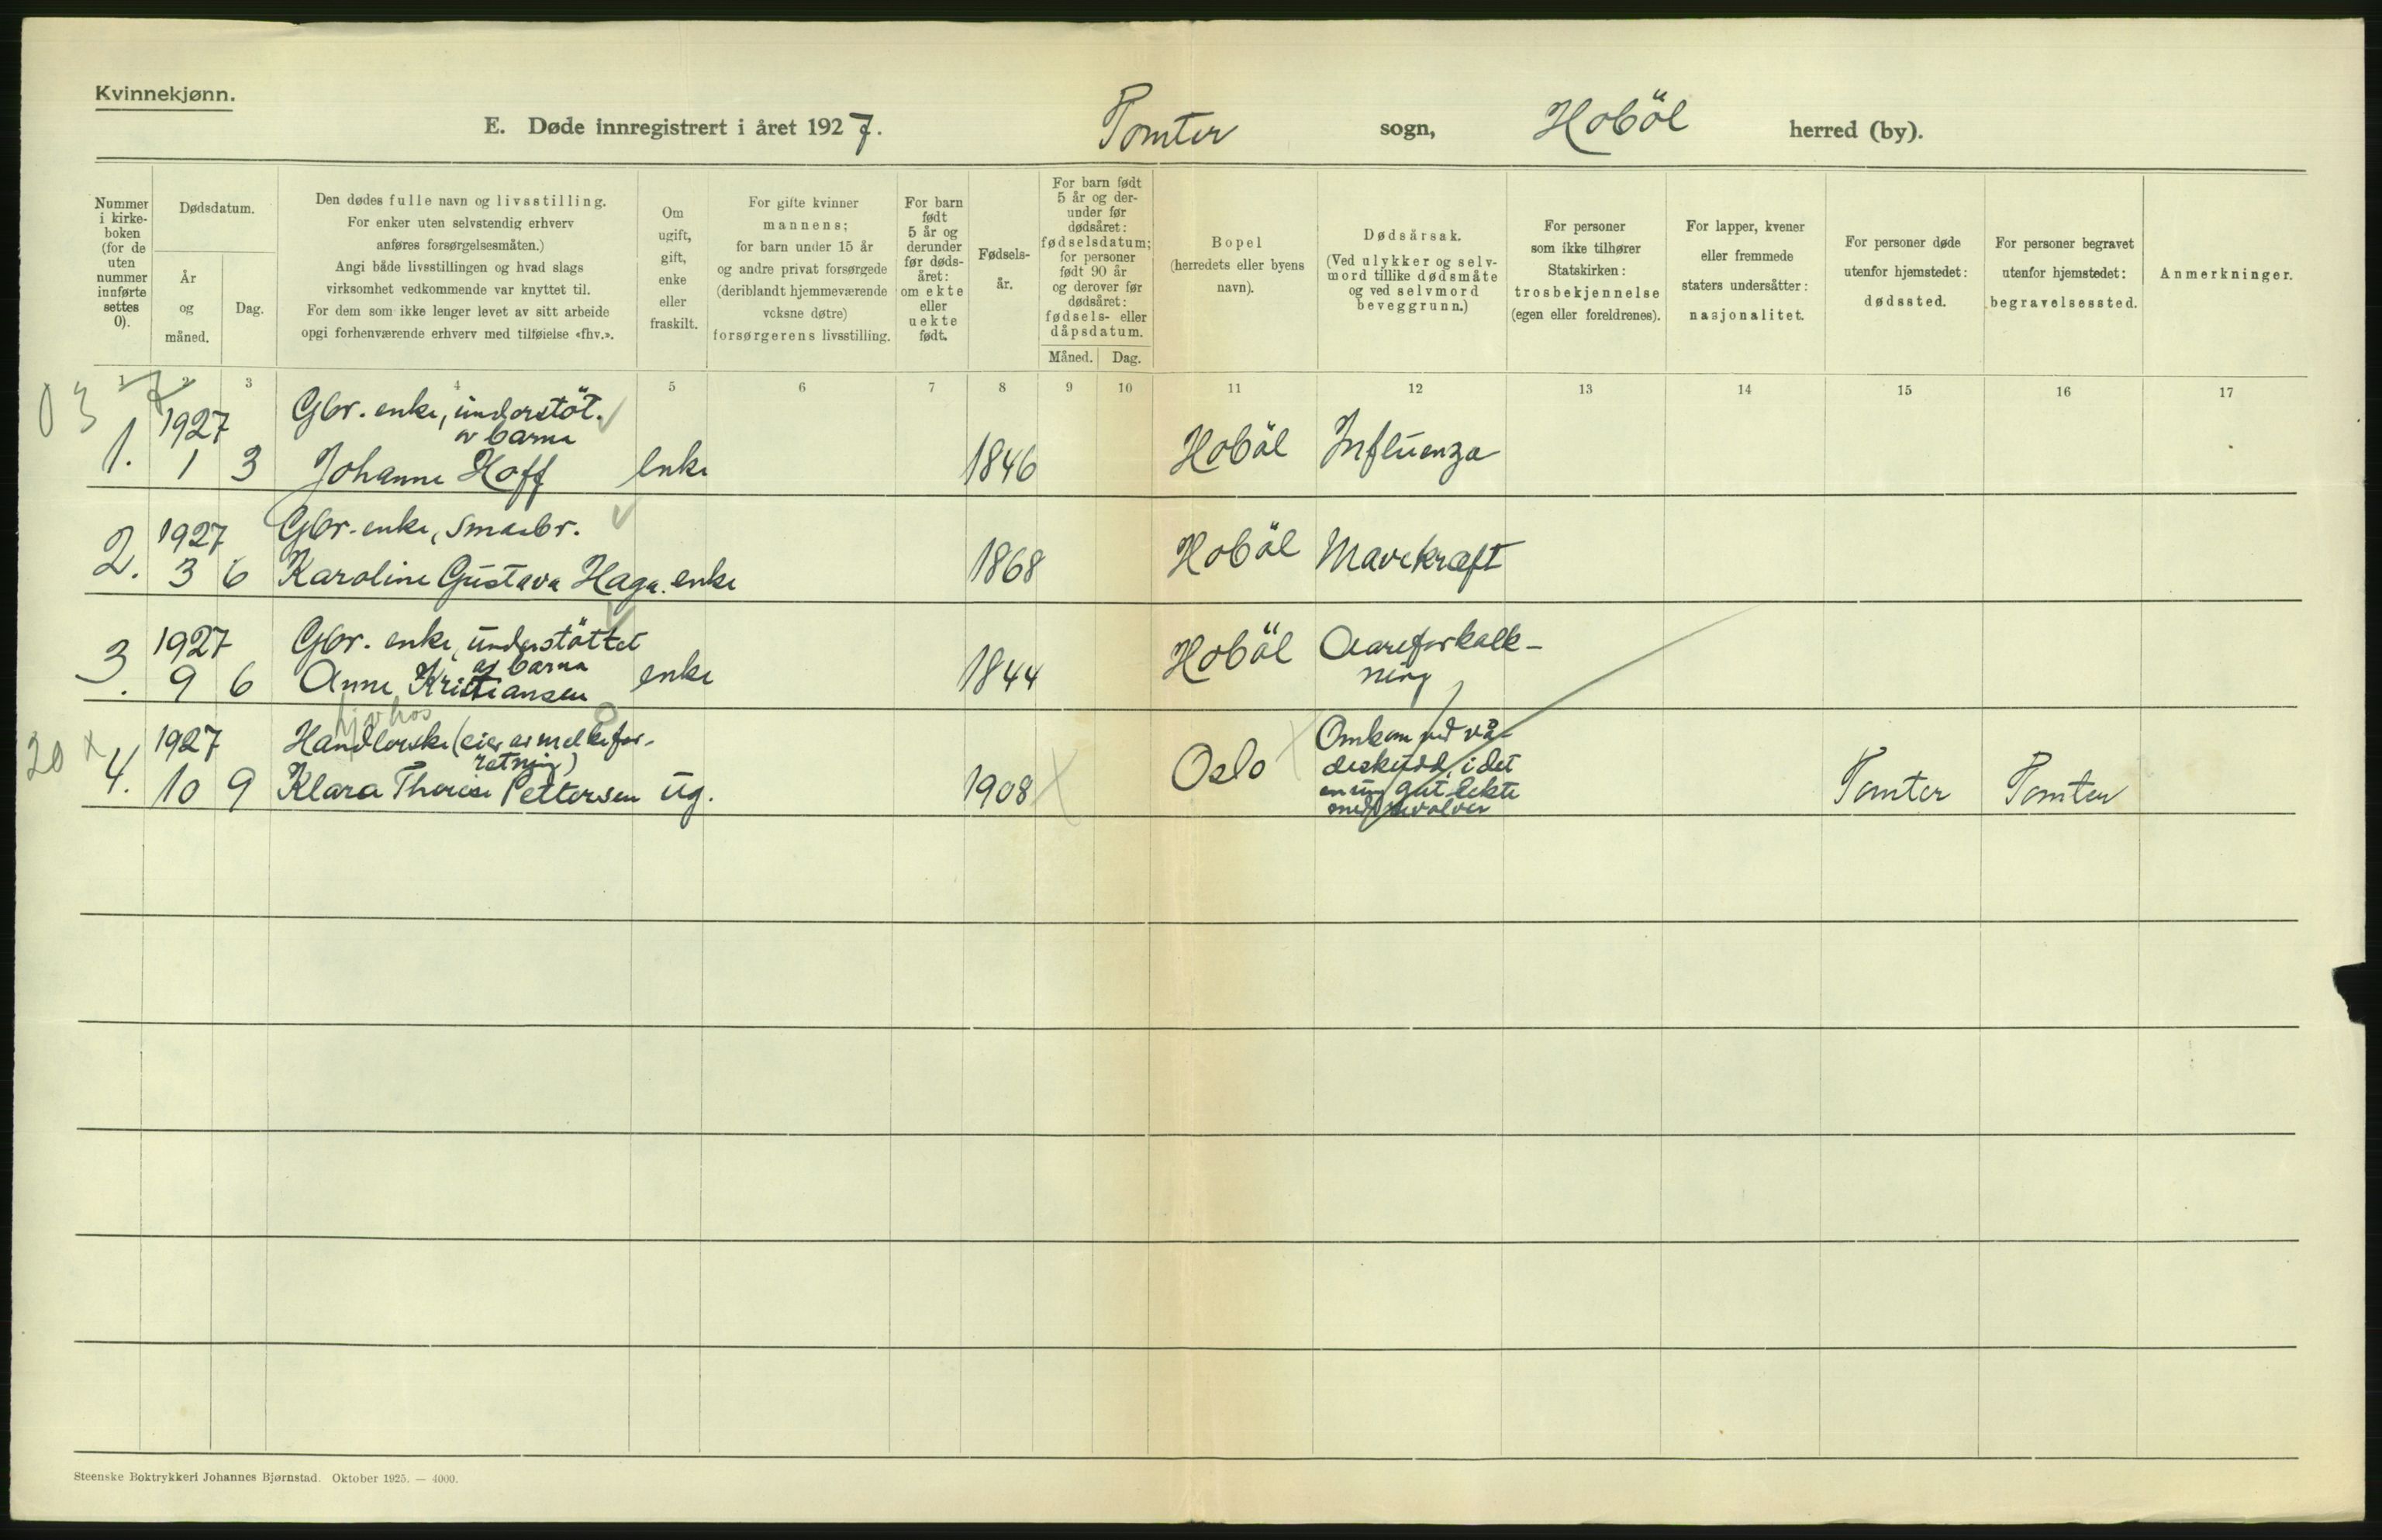 Kvinnekjønn.
E. Døde innregistrert i året 1927. Tomter sogn, Hoböl herred (by).
Nummer i kirke-boken (for de uten nummer innførte settes 0).
Dødsdatum.
År og måned.
Dag.
Den dødes fulle navn og livsstilling.
For enker uten selvstendig erhverv
anføres forsørgelsesmåten.)
Angi både livsstillingen og hvad slags
virksomhet vedkommende var knyttet til.
For dem som ikke lenger levet av sitt arbeide
opgi forhenværende erhverv med tilføielse «fhv.».
Om ugift, gift, enke eller fraskilt.
For gifte kvinner
mannens;
for barn under 15 år
og andre privat forsørgede
(deriblandt hjemmeværende
voksne døtre)
forsørgerens livsstilling.
For barn født 5 år og derunder før døds-året: om ekte eller uekte født.
Fødsels-år.
For barn født
5 år og der-
under før
dødsåret:
fødselsdatum;
for personer
født 90 år
og derover før
dødsåret:
fødsels- eller
dåpsdatum.
Måned. Dag.
Bopel
(herredets eller byens
navn).
Dødsårsak.
(Ved ulykker og selv-
mord tillike dødsmåte
og ved selvmord
beveggrunn.)
For personer
som ikke tilhører
Statskirken:
trosbekjennelse
(egen eller foreldrenes).
For lapper, kvener
eller fremmede
staters undersåtter:
nasjonalitet.
For personer døde
utenfor hjemstedet:
dødssted.
For personer begravet
utenfor hjemstedet:
begravelsessted.
Anmerkninger.
1 2 3 4 5 6 7 8 9 10 11 12 13 14 15 16 17
03 7
1927 Gbr. enke, understöt.
av barna
1. 1 3 Johanne Hoff enke 1846 Hoböl Influenza
1927 Gbr. enke, smaabr.
2. 3 6 Karoline Gustava Haga. enke 1868 Hoböl Mavekræft
1927 Gbr. enke, understöttet
av barna
3. 9 6 Anne Kristiansen enke 1844 Hoböl Aareforkalk-
ning
hjv hos
20 x 1927 Handlerske (eier av melkefor-
retning)
4. 10 9 Klara Therese Pettersen ug. 1908 Oslo
Omkom ved vå-
deskudd, idet
en ung gut lekte
med revolver
Tomter Tomter
Steenske Boktrykkeri Johannes Bjørnstad. Oktober 1925. — 4000.